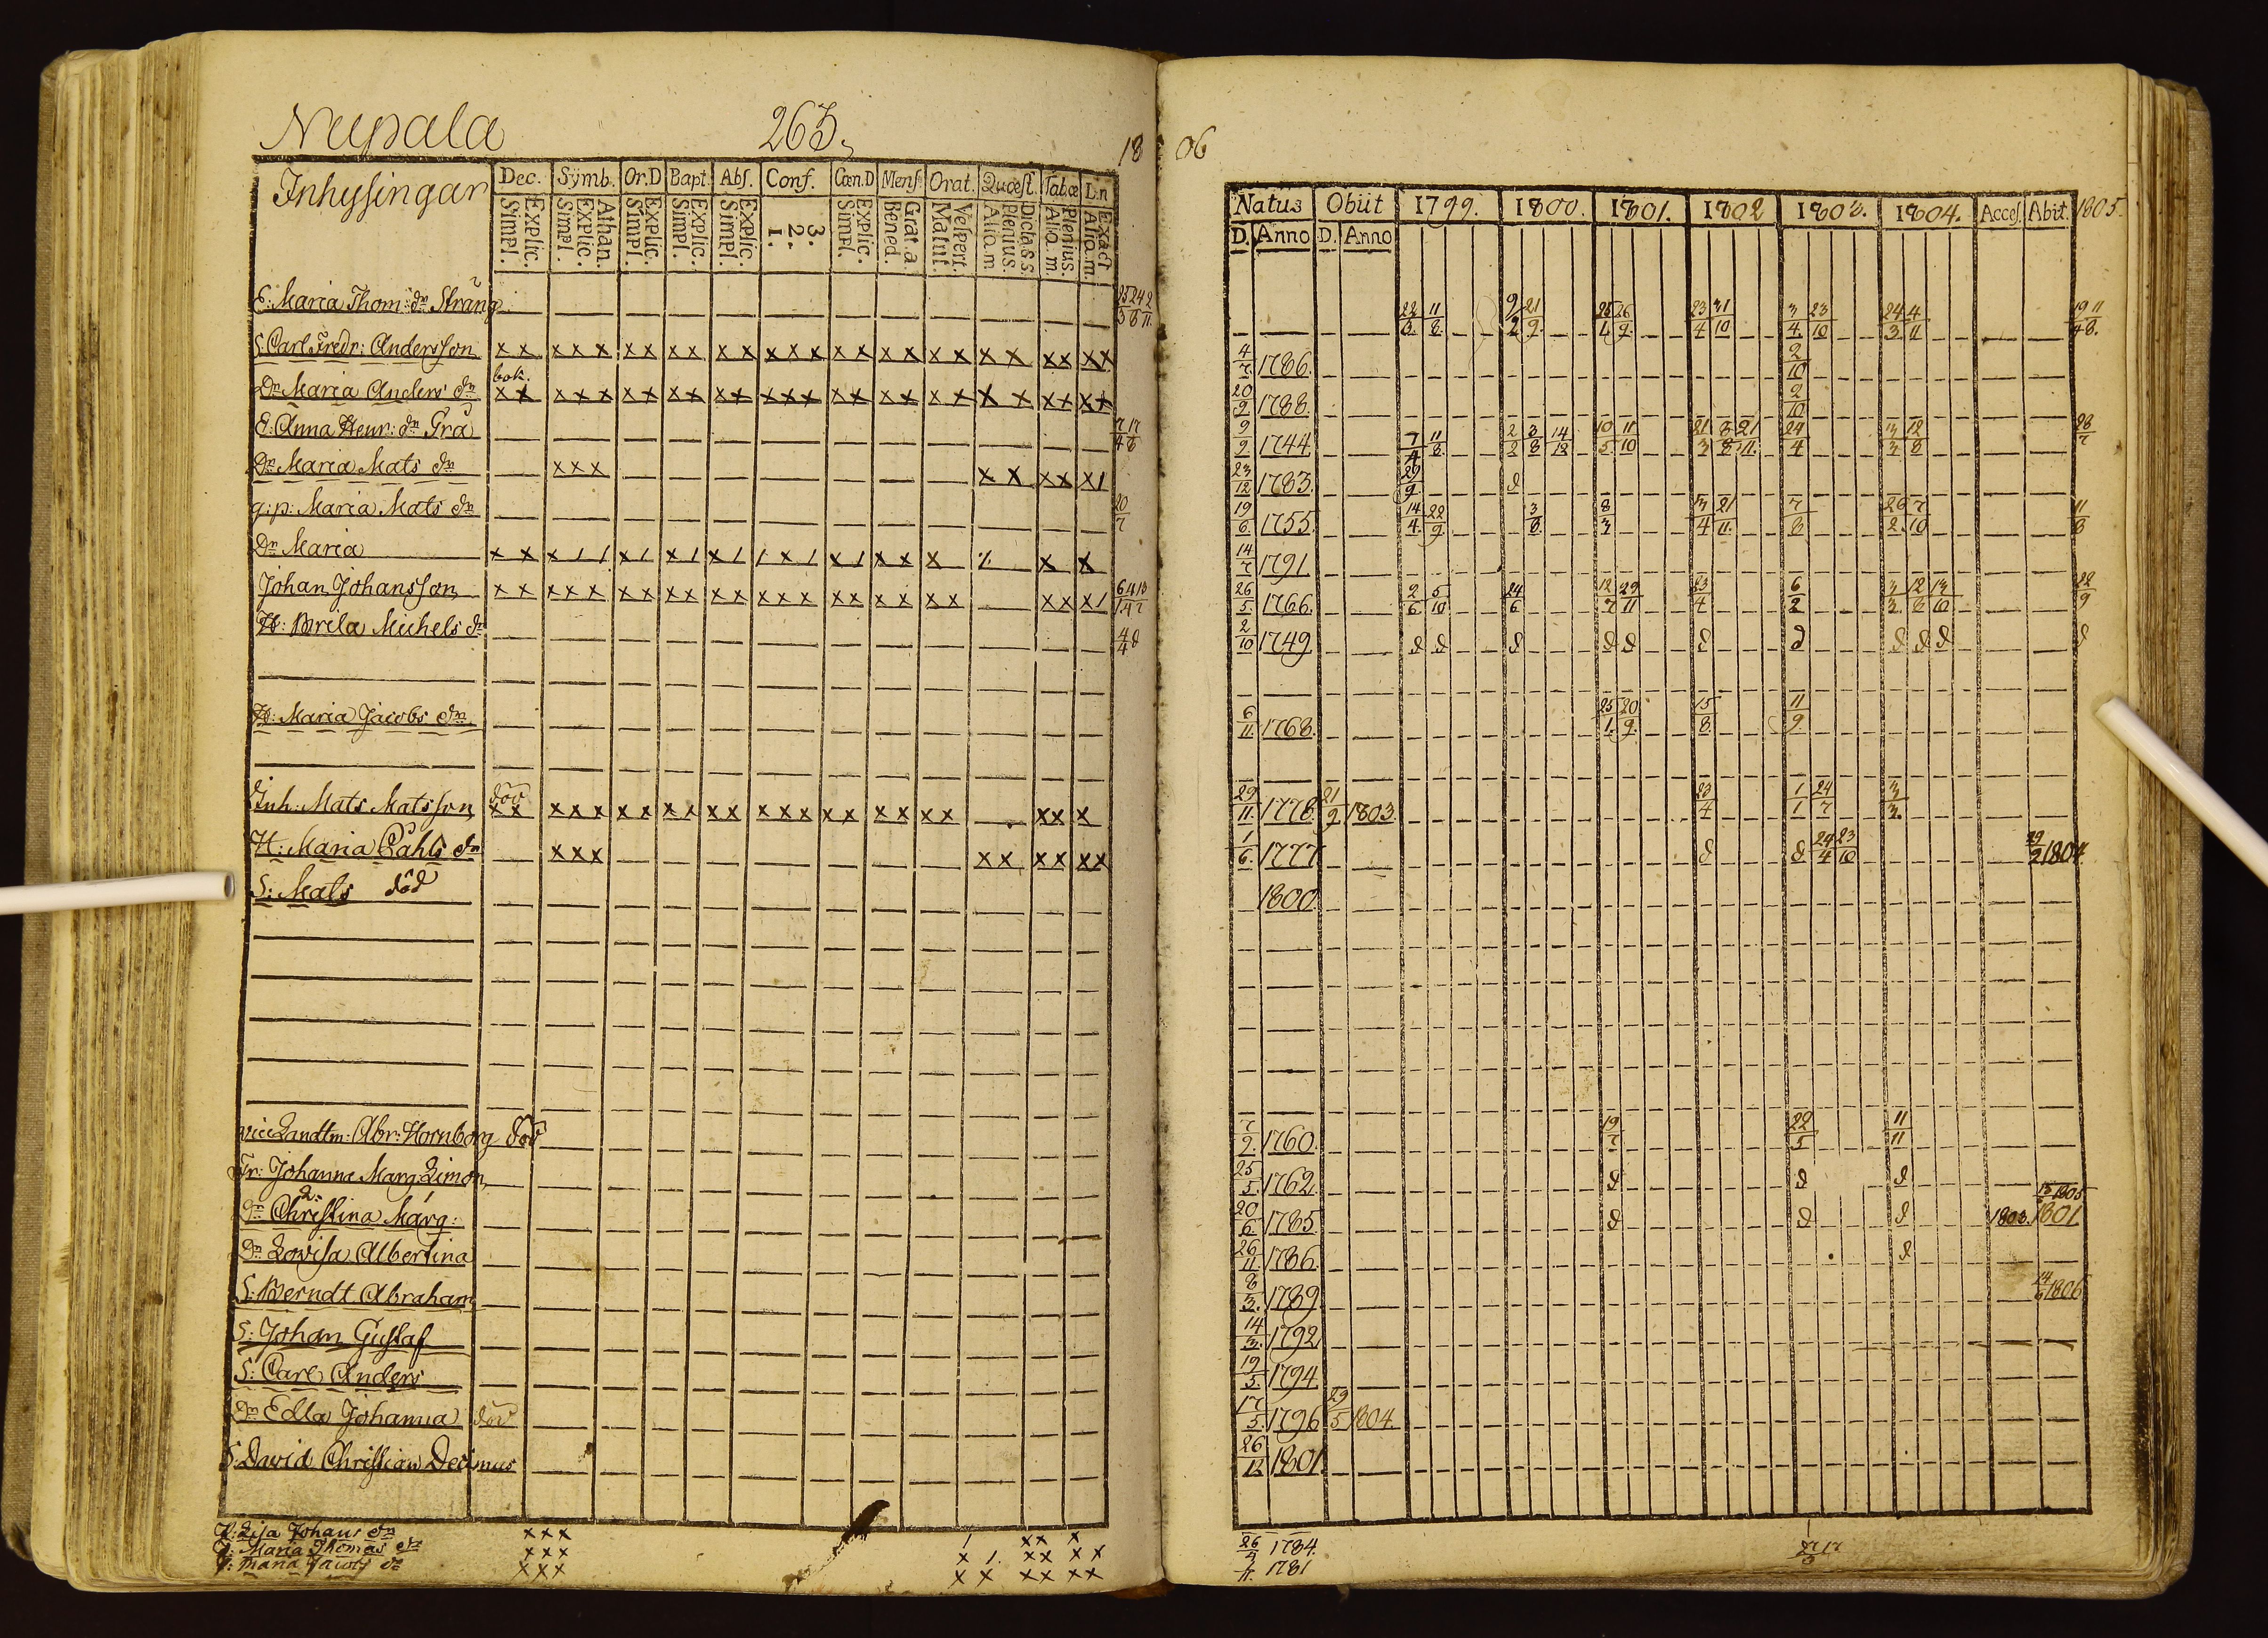 Nupala 263.
18 06
Inhysingar Dec. Symb. Or.D Bapt. Abs. Conf. Cœn.D Mens. Orat. Quæst. Tabæ L.n
Explic. Simpl. Athan. Explic. Simpl. Explic. Simpl. Explic. Simpl. Explic. Simpl. 3. 2. 1. Explic. Simpl. Grat. a. Bened. Vespert. Matut. Dicta. s.s. Plenius. Aliq. m. Plenius. Aliq. m. Exact Aliq. m.
Natus Obiit 1799. 1800. 1801. 1802 1803. 1804. Acces. Abit. 1805.
D. Anno D. Anno
E: Maria Thom: dr Strång 22/3 11/8 9/2 21/9 23/4 31/10 3/4 23/10 24/3 4/11 19/4 11/8
S. Carl Fredr: Andersson x x x x x x x x x x x x x x x x x x x x x x x x x 4/7 1786. 2/10
bok.
Dr Maria Anders dr x x x x x x x x x x x x x x x x x x x x x x x x x 20/9 1788. 2/10
E: Anna Henr: dr Grå 7/4 17/8 9/9 1744 7/4 11/8 2/2 3/8 14/12 10/5 11/10 21/3 8/8 21/11 24/4 3/3 12/8 28/7
Dr Maria Mats dr x x x x x x x x 1 23/12 1783. 29/9 d
q: p: Maria Mats dr 20/7 19/6 1755. 14/4 22/9 3/8 8/3 3/4 21/11 7/8 26/2 7/10 11/8
Dr Maria 14/7 1791
Johan Johansson x x x x x x x x x x x x x x x x x x x x x x 1 26/5 1766. 2/6 5/10 24/6 12/7 29/11 23/4 6/2 3/3 12/8 13/10 22/9
H: Brita Michels dr 4/4 d 2/10 1749 d d d d d d d d d d d
H: Maria Jacobs dr 6/11 1768 25/1 20/9 15/8 11/9
Inh: Mats Matsson död x x x x x x x x x x x x x x x x x x x x x x 29/11 1778. 21/9 1803. 23/4 1/1 24/7 3/3
H: Maria Påhls dr x x x x x x x x x 1/6 1777 d d 24/4 23/10 1804
S: Mats död 1800
vice Landtm: Abr: Hornborg död 7/2 1760. 19/7 22/5 11/11
Fr: Johanna Marg: Limon 25/5 1762 d d d
Dr Christina Marg: 20/6 1785. d d d 1803. 1801 1805
Dr Lovisa Albertina 26/11 1786. d
S: Berndt Abraham 8/3 1789 1806
S: Johan Gustaf 14/3 1792
S: Carl Anders 19/5 1794
Dr Edla Johanna död 17/5 1796 29/5 1804
S: David Christian Decimus 26/12 1801
H: Lisa Johans dr x x x 1 x x x 26/4 1784.
H: Maria Thomas dr x x x x 1. x x x x 1781
H: Maria Jacobs dr x x x x x x x x x